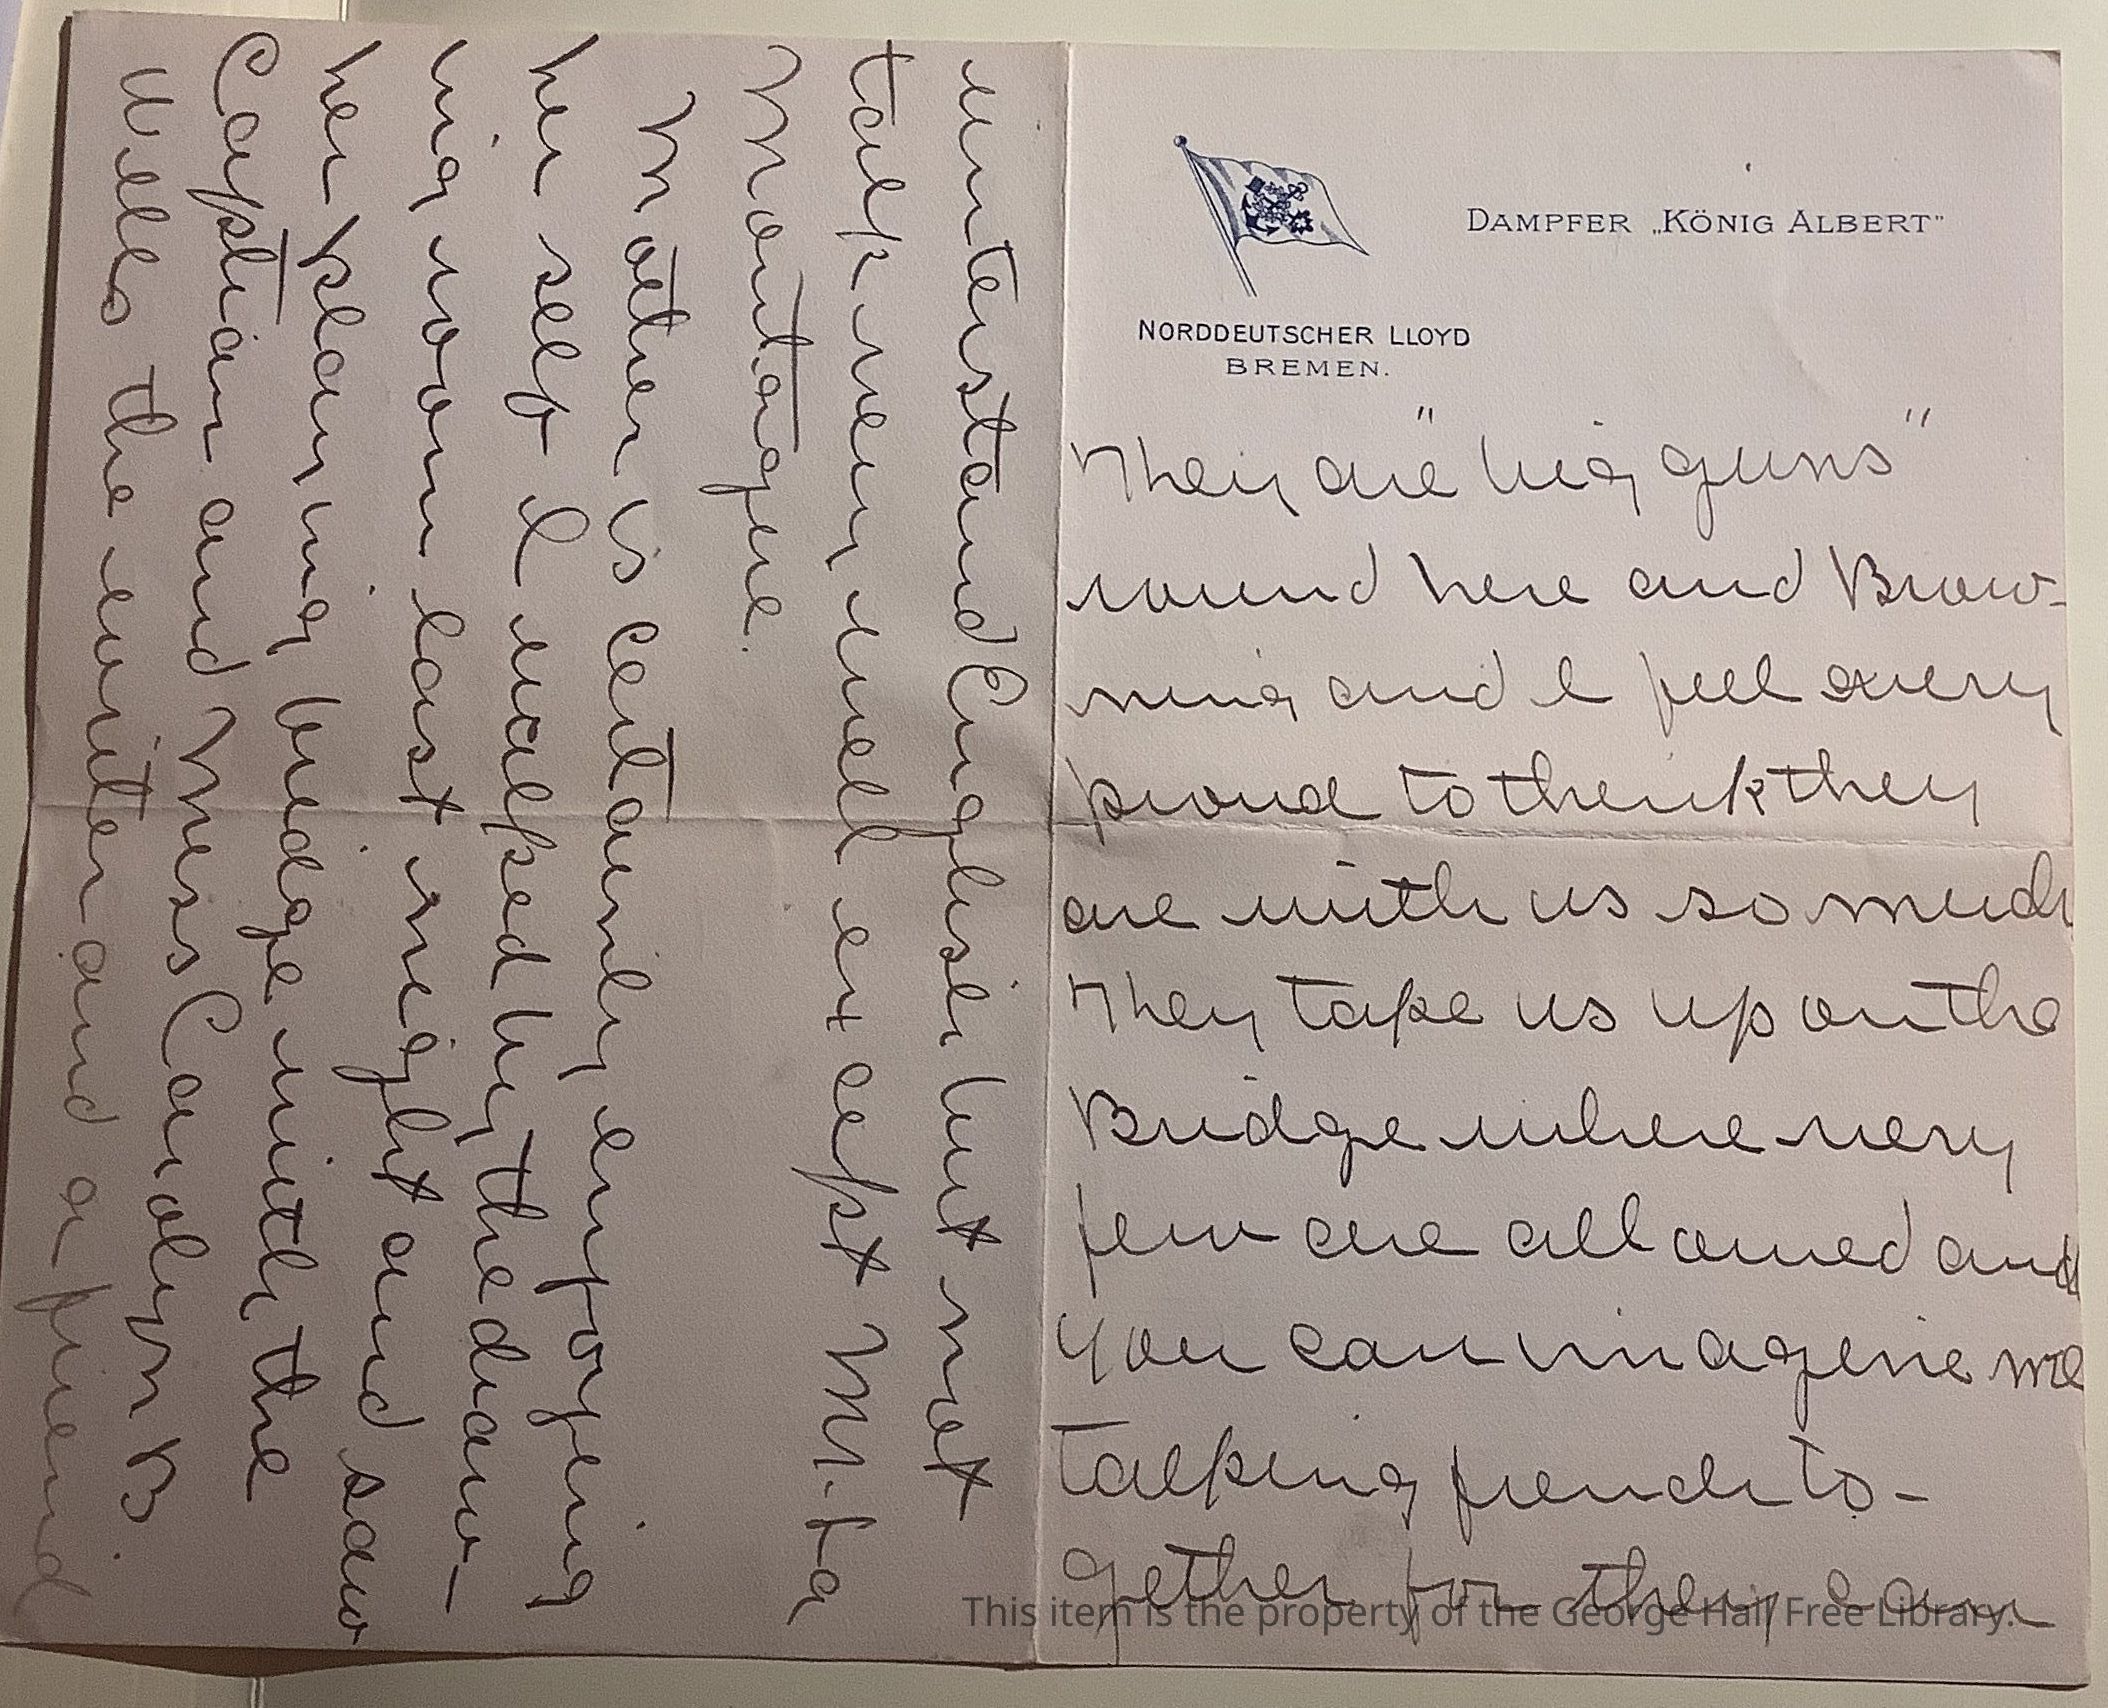 DAMPFER „KÖNIG ALBERT"
NORDDEUTSCHER LLOYD
BREMEN.
They are "big guns"
round here and Brow-
ning and I feel very
proud to think they
are with us so much
They take us up on the
Bridge where very
few are allowed and
you can imagine me
talking french to-
gether for they can
understand English but not
talk very well except Mr. La
Montagne.
Mother is certainly enjoying
her self I walked by the draw-
ing room last night and saw
her playing bridge with the
Captian and Miss Carolyn B
Wells the writer and a friend
This item is the property of the George Hail Free Library.